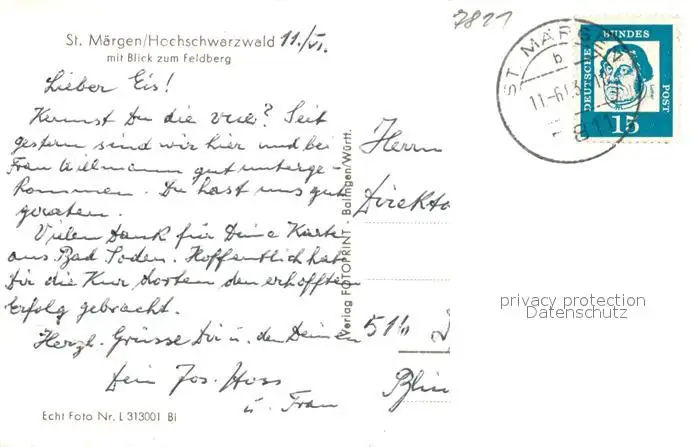 St. Märgen/Hochschwarzwald 11./VI.
mit Blick zum Feldberg
7811
ST. MÄRGEN
b
11.-6.63.
7811
DEUTSCHE BUNDESPOST
15
Lieber Eis!
Kennst Du die viele? Seit
gestern sind wir hier und bei
Frau Willmann gut unterge-
kommen. Du hast uns gut
geraten.
Vielen Dank für Deine Karte
aus Bad Soden. Hoffentlich hat
Dir die Kur dorten den erhofften
Erfolg gebracht.
Herzl. Grüsse Dir u. den Deinen
Dein Jos. Hoss
u. Frau
Echt Foto Nr. L 313001 Bi
Verlag FOTOPRINT - Balingen/Württ.
Herrn
Direkto
516
Blin
privacy protection
Datenschutz